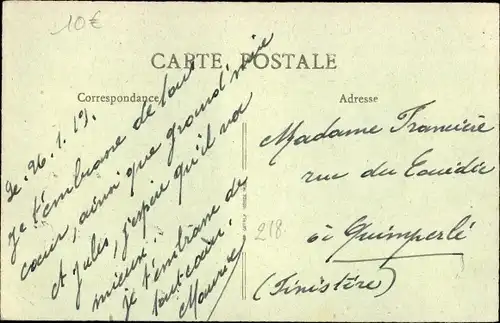 10€
CARTE POSTALE
Correspondance
Adresse
Le. 26.1.19.
Je t'embrasse de tout
cœur, ainsi que grand'mère
et Jules, j'espère qu'il va
mieux.
je t'embrasse de
tout cœur.
Maurice
Madame
rue du
à Quimperlé
(Finistère)
218